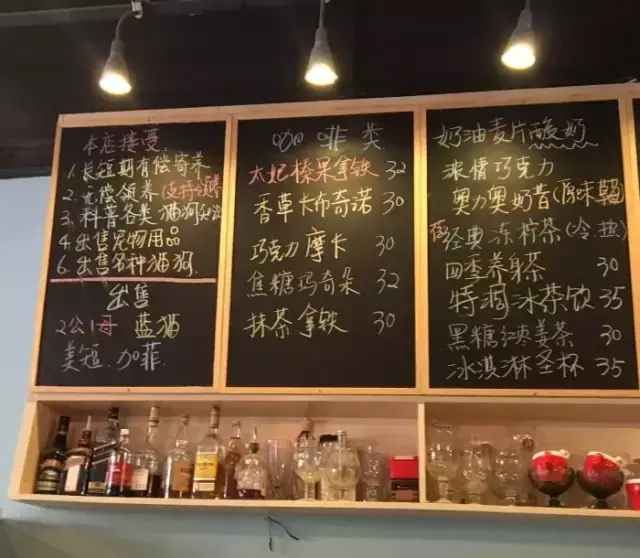 本店接受
1.长短期有偿寄养
2.无偿领养(支持领养
3.科普各类猫狗知识
4.出售宠物用品
6.出售各种猫狗.
出售
2公1母 蓝猫
美短.加菲.
咖啡类
太妃榛果拿铁 32
香草卡布奇诺 30
巧克力摩卡 30
焦糖玛奇朵 32
抹茶拿铁 30
奶油麦片酸奶
浓情巧克力
奥力奥奶昔(原味
经典冻柠茶(冷热)
四季养身茶 30
特调冰茶饮 35
黑糖红枣姜茶 30
冰淇淋圣杯 35